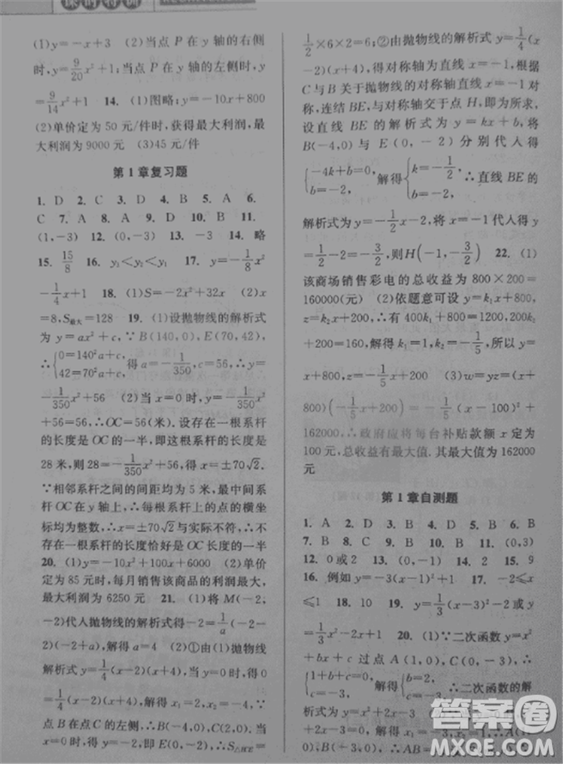 课时特训
(1)y=-x+3 (2)当点 P 在 y 轴的右侧
时,y=9/20 x²+3;当点 P 在 y 轴的左侧时,y
=9/4 x²+1 14. (1)图略;y=-10x+800
(2)单价定为 50 元/件时,获得最大利润,最
大利润为 9000 元 (3)45 元/件
第 1 章复习题
1. D 2. C 3. D 4. C 5. A 6.
C 7. A 8. D 9. B 10. D 11.
(1,-3) 12. (0,-3) 13. < 14. 略
15. 15/8 16. y₁<y₂<y₃ 17. y=-1/4 x²-
1/4 x+1 18. (1)S=-2x²+32x (2)x
=8,S最大= 19. (1)设抛物线的解析
式为 y=ax²+c,∵B(140,0),E(70,42),
∴{0=140²a+c, 42=70²a+c. ∴a=-1/350,c=56,∴y=
-1/350 x²+56 (2)∵y=-1/350 x²+56,当x=0时,y
=56=56,∴OC=56 米. 设存在一根系杆
的长度是 OC 的一半,即这根系杆的长度是
28 米,则 28=-1/350 x²+56,解得 x=±70√2.
∵相邻系杆之间的间距均为 5 米,最中间系
杆 OC 在 y 轴上,∴每根系杆上的点的横坐
标均为整数. ∴x=±70√2与实际不符. ∴不存
在一根系杆的长度恰好是 OC 长度的一半
20. (1)y=-10x²+100x+6000 (2)当单
价定为85元时,每月销售该商品的利润最大,
最大利润为 6250 元 21. (1)将 M(-2,
-2)代入抛物线的解析式得-2=1/a(-2-
2)(-2+a),解得 a=4 (2)①由(1)抛物线
解析式 y=1/4(x-2)(x+4),当 y=0 时,得0
=1/4(x-2)(x+4),解得 x₁=2,x₂=-4. ∵
点 B 在点 C 的左侧,∴B(-4,0),C(2,0). 当
x=0时,得 y=-2,即 E(0,-2),∴S△BCE=
1/2×6×2=6;②由抛物线的解析式 y=1/4(x-
2)(x+4),得对称轴为直线 x=-1,根据
C与 B 关于抛物线的对称轴直线 x=-1对
称,连结 BE,与对称轴交于点 H,即为所求,
设直线 BE 的解析式为 y=kx+b,将
B(-4,0) 与 E(0,-2) 分别代人得
{-4k+b=0, b=-2, 解得{k=-1/2, b=-2, ∴直线 BE 的
解析式为 y=-1/2 x-2,将 x=-1代人得 y
=1/2-2=-3/2,则 H(-1,-3/2) 22. (1)
该商场销售彩电的总收益为 800×200=
160000(元) (2)依题意可设 y=k₁x+
800,z=k₂x+200,∴有 400k₁+800=
1200,200k₂+200=160,解得 k₁=1,k₂=-1/5,所以 y=x
+800,z=-1/5 x+200 (3)w=yz=(x+
800)(-1/5 x+200)=-1/5(x-100)²+
162000. ∴政府应将每台补贴款额 x 定为
100元,总收益有最大值. 其最大值为 162000
元
第 1 章自测题
1. A 2. D 3. B 4. A 5. B 6.
D 7. D 8. B 9. B 10. D 11. (0,
3) 12. 0或2 13. (0,-1) 14. 2 15. 9
16. 例如 y=-x²+2x 17. -2≤x
≤1 18. 10 19. y=1/3(x-3)²-1,y=
1/3 x²-2x+2 20. (1)∵二次函数 y=x²
+bx+c 过点 A(1,0),C(0,-3),
∴{1+b+c=0, c=-3. 解得{b=2, c=-3. ∴二次函数的解析
式为 y=x²+2x-3 (2)∵当y=0时,x²+
2x-3=0,解得 x₁=-3,x₂=1;∴A(1,
0),B(-3,0),∴AB=4,
答案圈
MXQE.COM